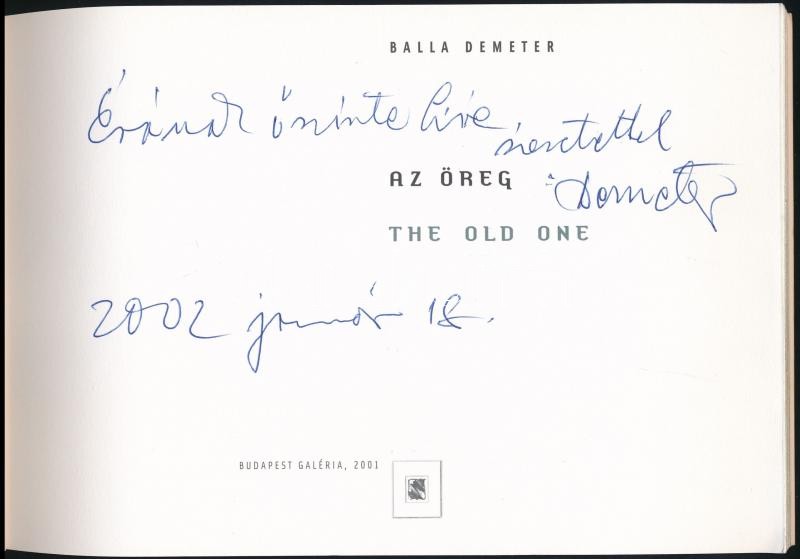 BALLA DEMETER
Évának őszinte híve
szeretettel
AZ ÖREG
Demeter
THE OLD ONE
2002 január 18.
BUDAPEST GALÉRIA, 2001